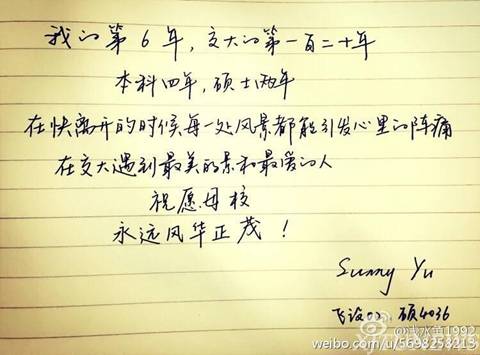 我的第6年，交大的第一百二十年
本科四年，硕士两年
在快离开的时候每一处风景都能引发心里的阵痛
在交大遇到最美的景和最爱的人
祝愿母校
永远风华正茂！
Sunny Yu
硕4036
@浅水鱼1992
weibo.com/u/5698258213